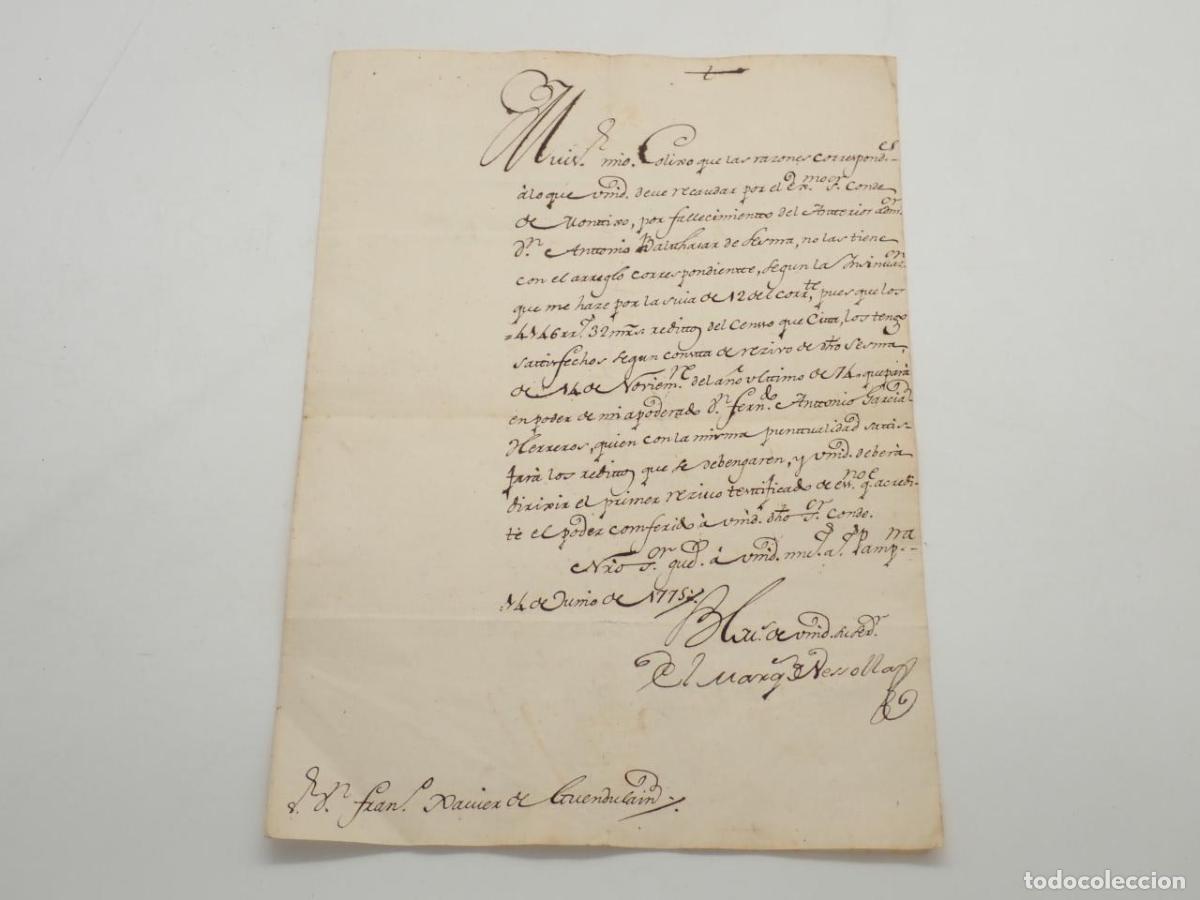 Mui Sr. mio. Colixo que las razones correspondes.
à lo que vmd. deve recaudar por el Exmo. Sr. Conde
de Montixo, por fallecimientto del Antterior Admor.
Dn. Anttonio Balthasar de Sesma, no las tiene
con el arreglo correspondientte, segun la Insinuazon.
que me haze por la suia de 12 del cortte, pues que los
4146 rrs. 32 mrs. redittos del Censso que Citta, los tengo
sattisfechos segun constta de rezivo de dho Sesma,
de 14 de Noviemre. del año vlttimo de 74 que parà
en poder de mi apoderado Dn. Ferndo. Anttonio Garcia
Herreros, quien con la misma punttualidad sattis-
farà los redittos que se debengaren, y vmd. deberà
dirixir el primer rezivo testtificado de essno. q.e acredi-
te el poder comferido à vmd. dho Sr. Conde.
Nro Sr. gue. à vmd. mus. as. Pampna.
14 de Junio de 1775
BLM. de vmd. su ser.
El Marqs. de Vessolla
Sr. Dn. Franco. Xavier de Guendulaind
todocoleccion